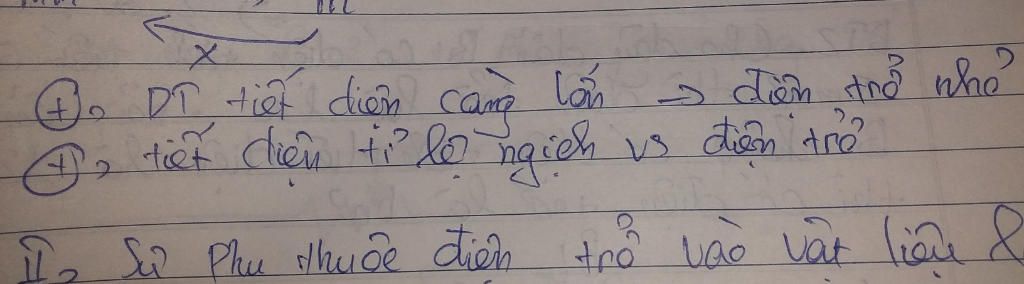 x
+, DT tiết diện càng lớn → điện trở nhỏ
+, tiết diện tỉ lệ nghịch vs điện trở
II, Sự phụ thuộc điện trở vào vật liệu &